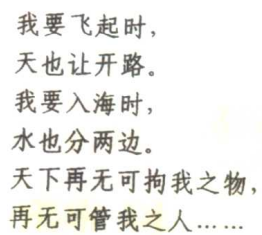 我要飞起时，
天也让开路。
我要入海时，
水也分两边。
天下再无可拘我之物，
再无可管我之人……